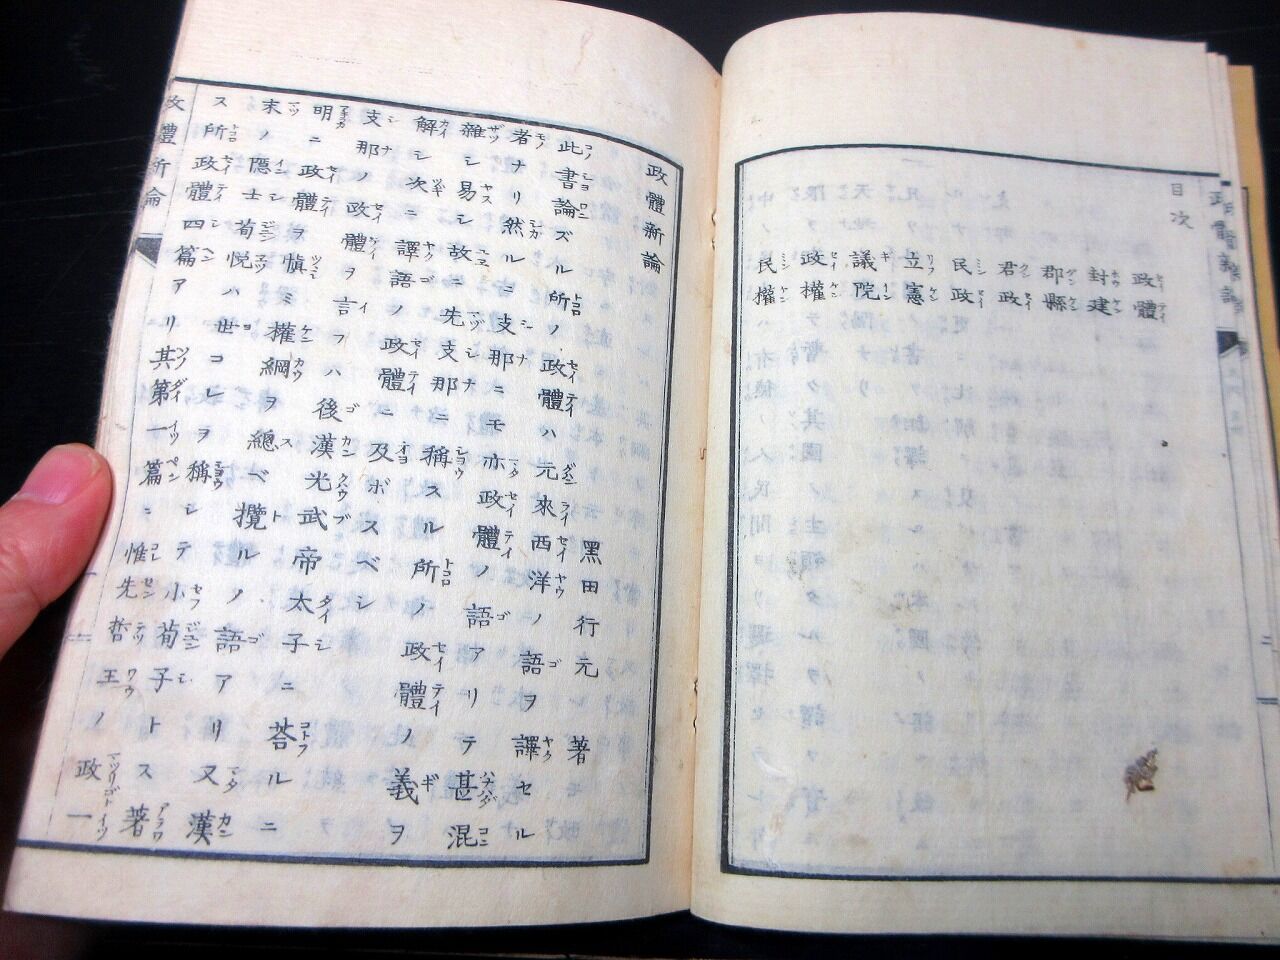 目次
政體
封建
郡縣
君政
民政
立憲
議院
政權
民權
政體新論
黑田行元 著
此書論ズル所ノ政體ハ元來西洋ノ語ヲ譯セル
者ナリ然ルニ支那ニモ亦政體ノ語アリテ甚混
雜シ易シ故ニ先支那ニ稱スル所ノ政體ノ義ヲ
解シ次ニ譯語ノ政體ニ及ボスベシ
支那ノ政體ヲ言フハ後漢光武帝太子ニ荅ルニ
明ニ政體ヲ愼ミ權綱ヲ總ベ攬ルノ語アリ又漢
末ノ隱士荀悅ハ世コレヲ稱シテ小荀子トス著
ス所政體四篇アリ其第一篇ニ惟先哲王ノ政一
政體新論